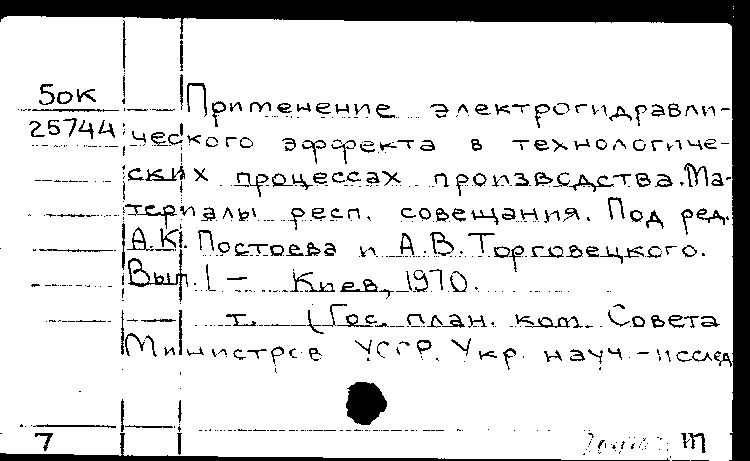 50К
25744
Применение электрогидравли-
ческого эффекта в технологиче-
ских процессах производства. Ма-
териалы респ. совещания. Под ред.
А.К. Постоева и А.В. Торговецкого.
Вып. 1 – Киев, 1970.
т. (Гос. план. ком. Совета
Министров УССР. Укр. науч.-исслед
7 m